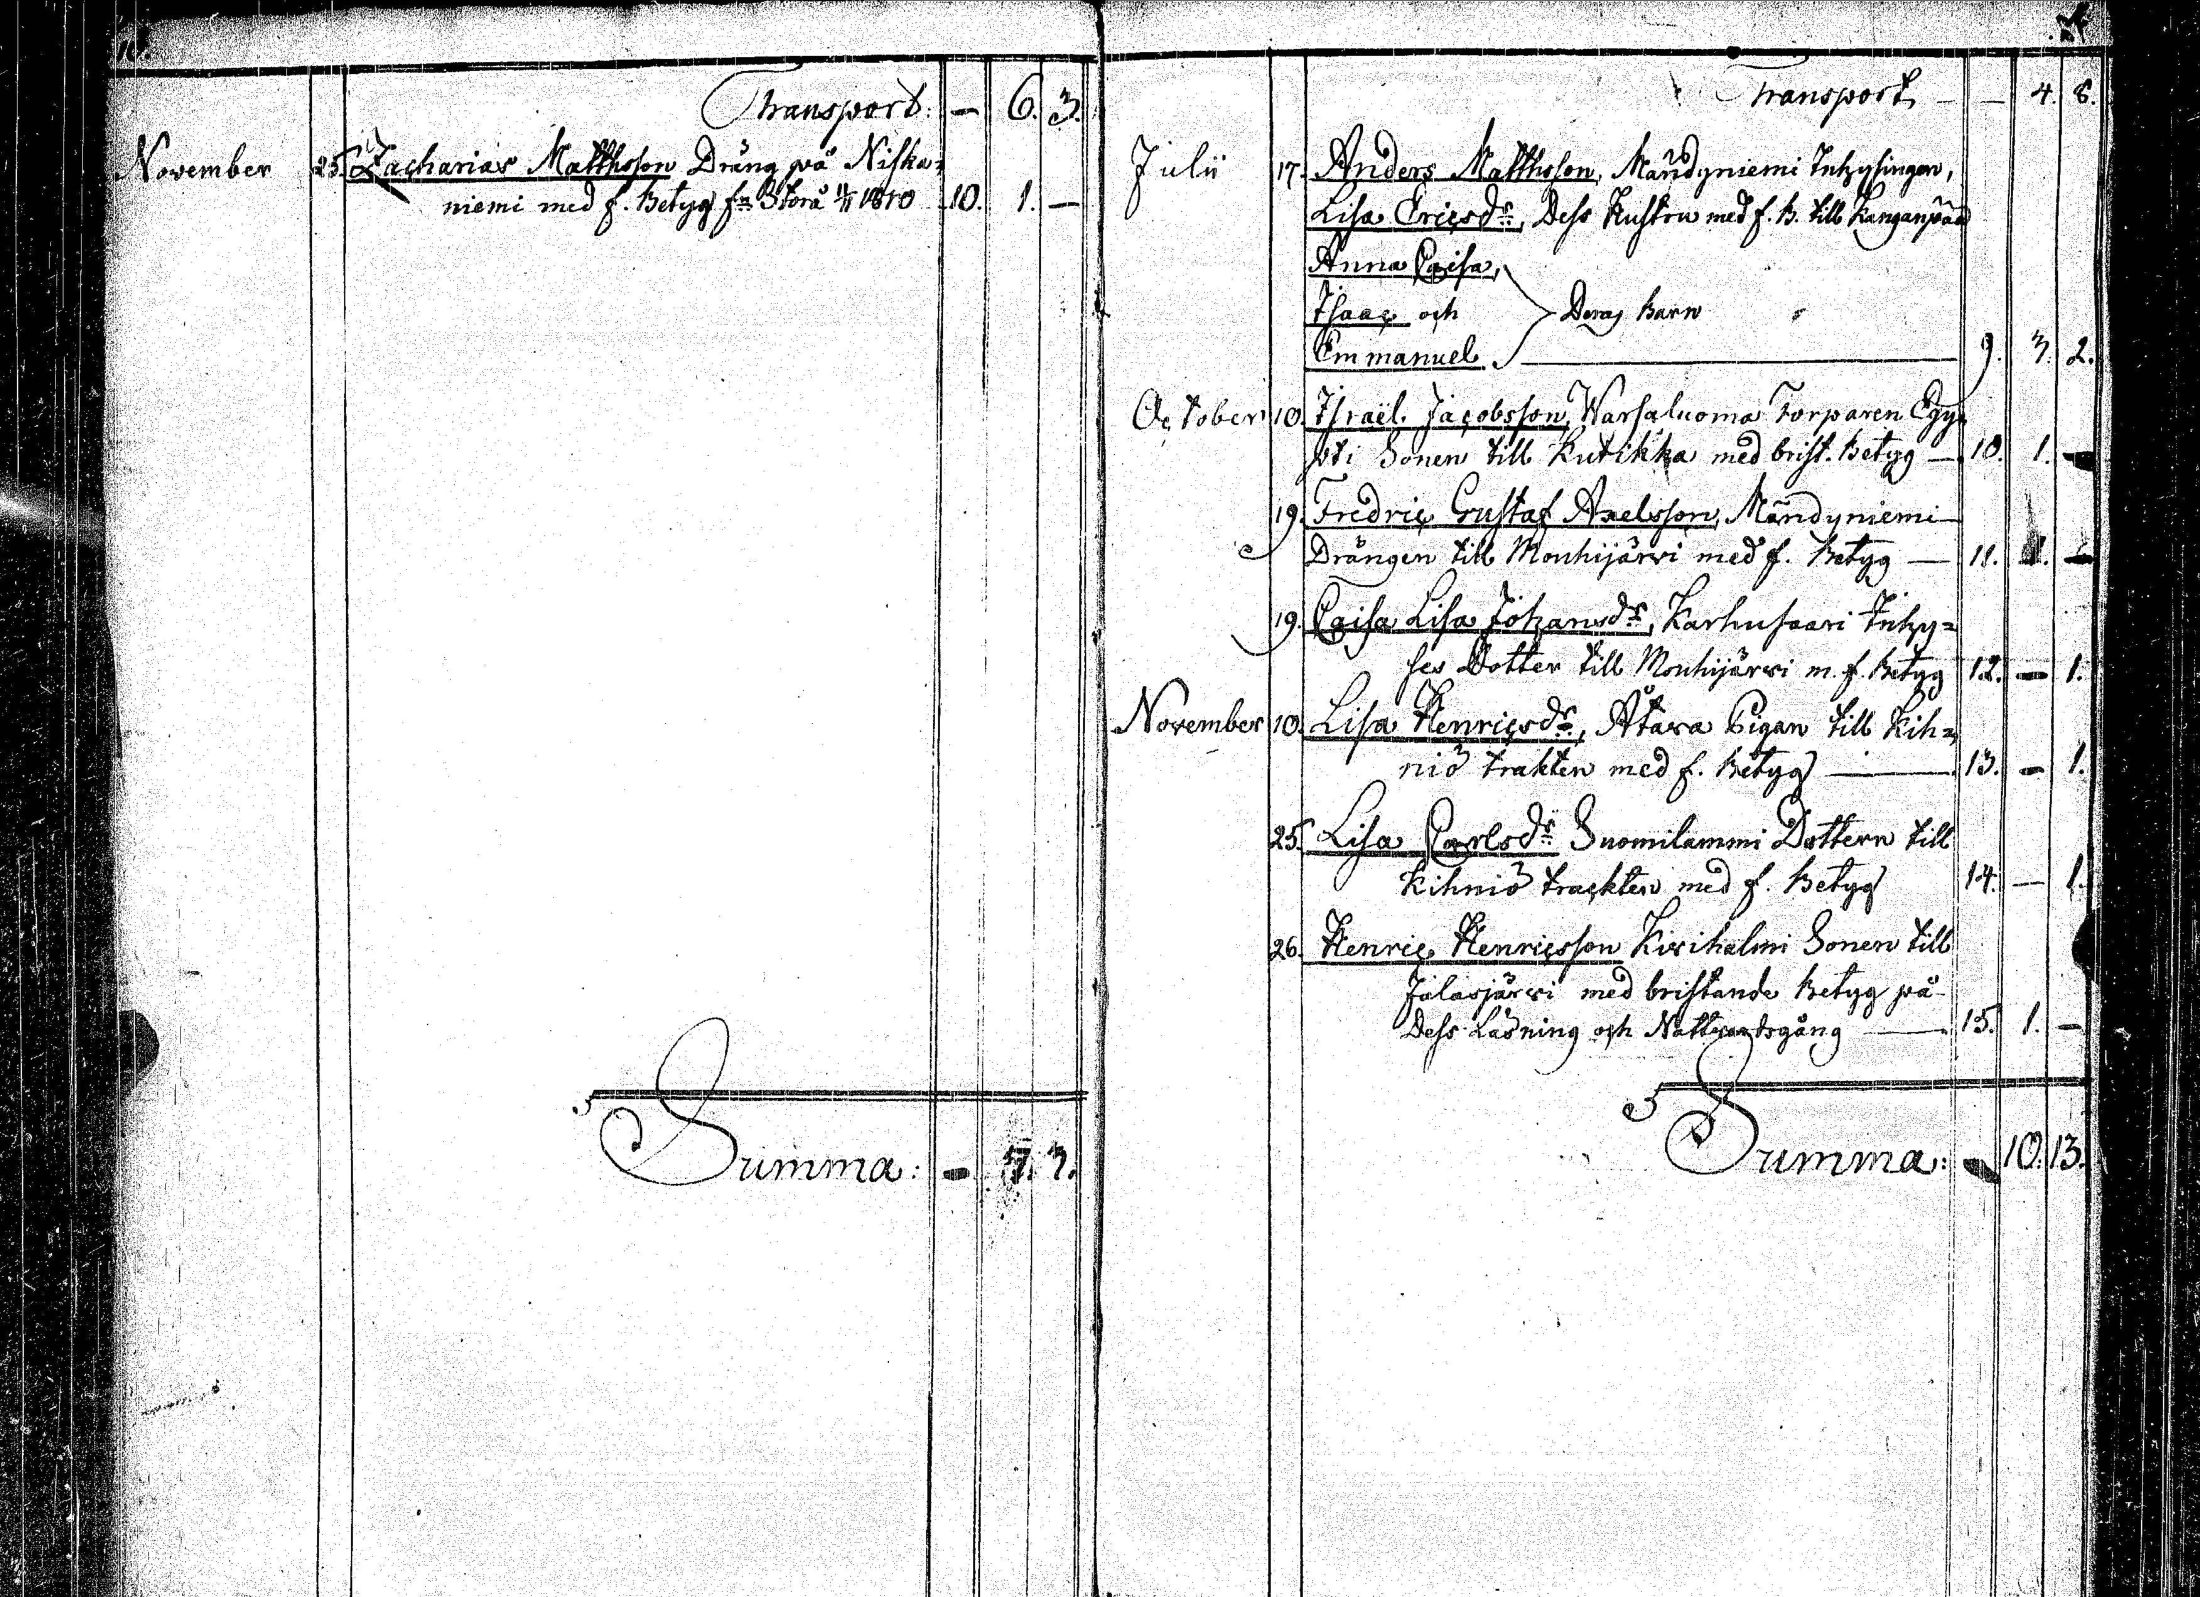 Transport: — 6. 3.
November 25. Zacharias Matthsson Dräng på Niska=
niemi med f. Betyg fn Storå 11/11 1810 10. 1. —
Summa: — 7. 3.
Transport — — 4. 8.
Julii 17. Anders Matthsson, Mändyniemi Inhysingen,
Lisa Ericsdr, Dess Hustru med f. B. till Kanganpää
Anna Caisa,
Isaac och Deras Barn
Emmanuel 9. 3. 2.
October 10. Israël Jacobsson, Warsaluoma Torparen Egy=
pti Sonen till Kutikka med brist. Betyg — 10. 1. —
19. Fredric Gustaf Axelsson, Mändyniemi
Drängen till Mouhijärvi med f. Betyg — 11. 1. —
19. Caisa Lisa Johansdr, Karhusaari Inhy=
ses Dotter till Mouhijärvi m. f. Betyg 12. — 1.
November 10. Lisa Henricsdr, Ätara Pigan till Kih=
niö trakten med f. Betyg — 13. — 1.
25. Lisa Carlsdr Suomilammi Dottern till
Kihniö trackten med f. Betyg 14. — 1.
26. Henric Henricsson Kivihalmi Sonen till
Jalasjärvi med bristande Betyg på
Dess Läsning och Nattvardsgång — 15. 1. —
Summa: — 10. 13.